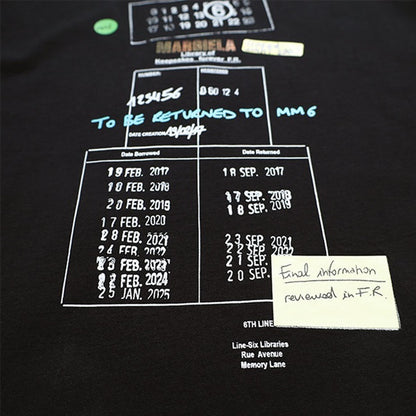 MARGIELA
Library of
Keepsakes forever F.R.
NUMBER:
123456 060 12 4
TO BE RETURNED TO MM6
DATE CREATION:
Date Borrowed Date Returned
19 FEB. 2017 18 SEP. 2017
18 FEB. 2018 17 SEP. 2018
20 FEB. 2019 18 SEP. 2019
17 FEB. 2020
28 FEB. 2021 23 SEP. 2021
24 FEB. 2022 22 SEP. 2022
23 FEB. 2023 21 SEP.
22 FEB. 2024 20 SEP.
25 JAN. 2025
Final information
reviewed in F.R.
6TH LINE
Line-Six Libraries
Rue Avenue
Memory Lane